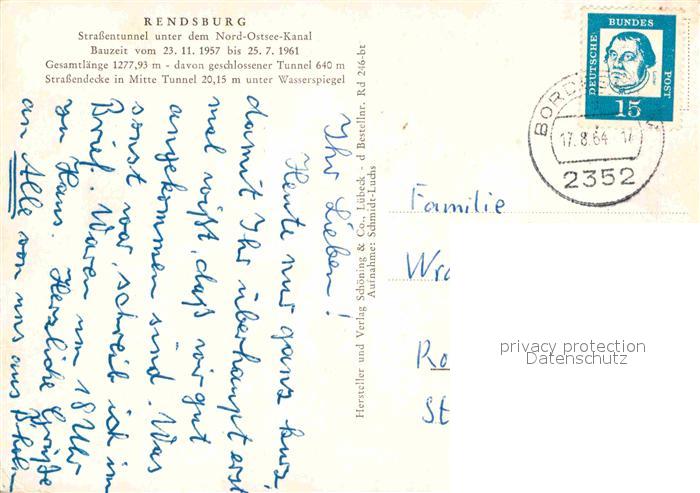 RENDSBURG
Straßentunnel unter dem Nord-Ostsee-Kanal
Bauzeit vom 23. 11. 1957 bis 25. 7. 1961
Gesamtlänge 1277,93 m - davon geschlossener Tunnel 640 m
Straßendecke in Mitte Tunnel 20,15 m unter Wasserspiegel
Ihr Lieben!
Heute nur ganz kurz,
damit Ihr überhaupt erst
mal wißt, daß wir gut
angekommen sind. Was
sonst war, schreib ich im
Brief. Waren um 18 Uhr
zu Haus. Herzliche Grüße
an Alle von uns aus
Hersteller und Verlag Schöning & Co., Lübeck - d Bestellnr. Rd 246-bt
Aufnahme: Schmidt-Luchs
DEUTSCHE BUNDES POST
15
17.8.64
2352
Familie
Wra
Ro
St
privacy protection
Datenschutz